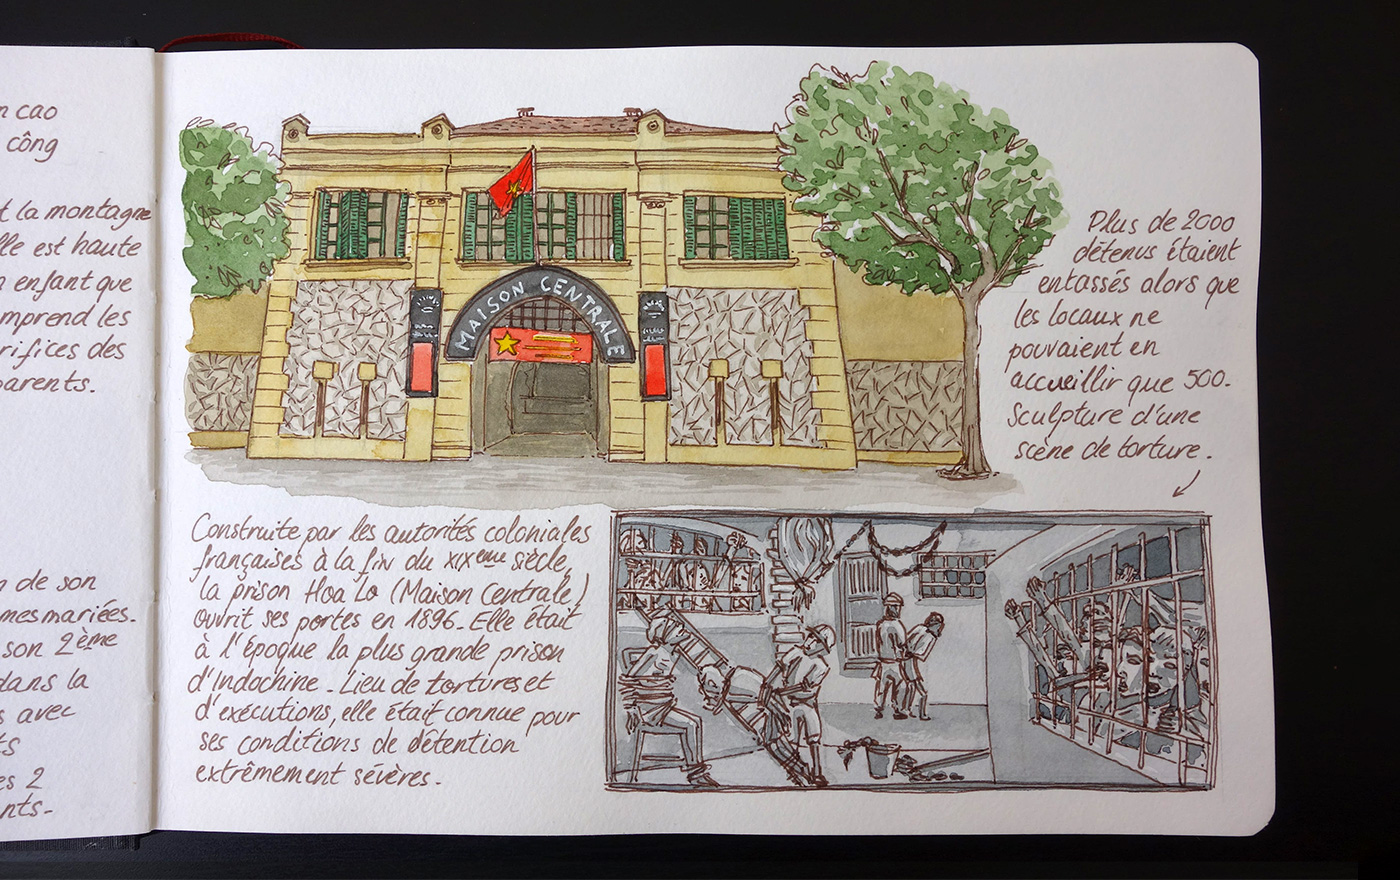 n cao
công
t la montagne
lle est haute
n enfant que
mprend les
rifices des
parents.
n de son
mes mariées.
son 2ème
dans la
s avec
ts
es 2
nts.
MAISON CENTRALE
Plus de 2000
détenus étaient
entassés alors que
les locaux ne
pouvaient en
accueillir que 500.
Sculpture d'une
scène de torture.
Construite par les autorités coloniales
françaises à la fin du XIXeme siècle,
la prison Hoa Lo (Maison Centrale)
ouvrit ses portes en 1896. Elle était
à l'époque la plus grande prison
d'Indochine. Lieu de tortures et
d'exécutions, elle était connue pour
ses conditions de détention
extrêmement sévères.